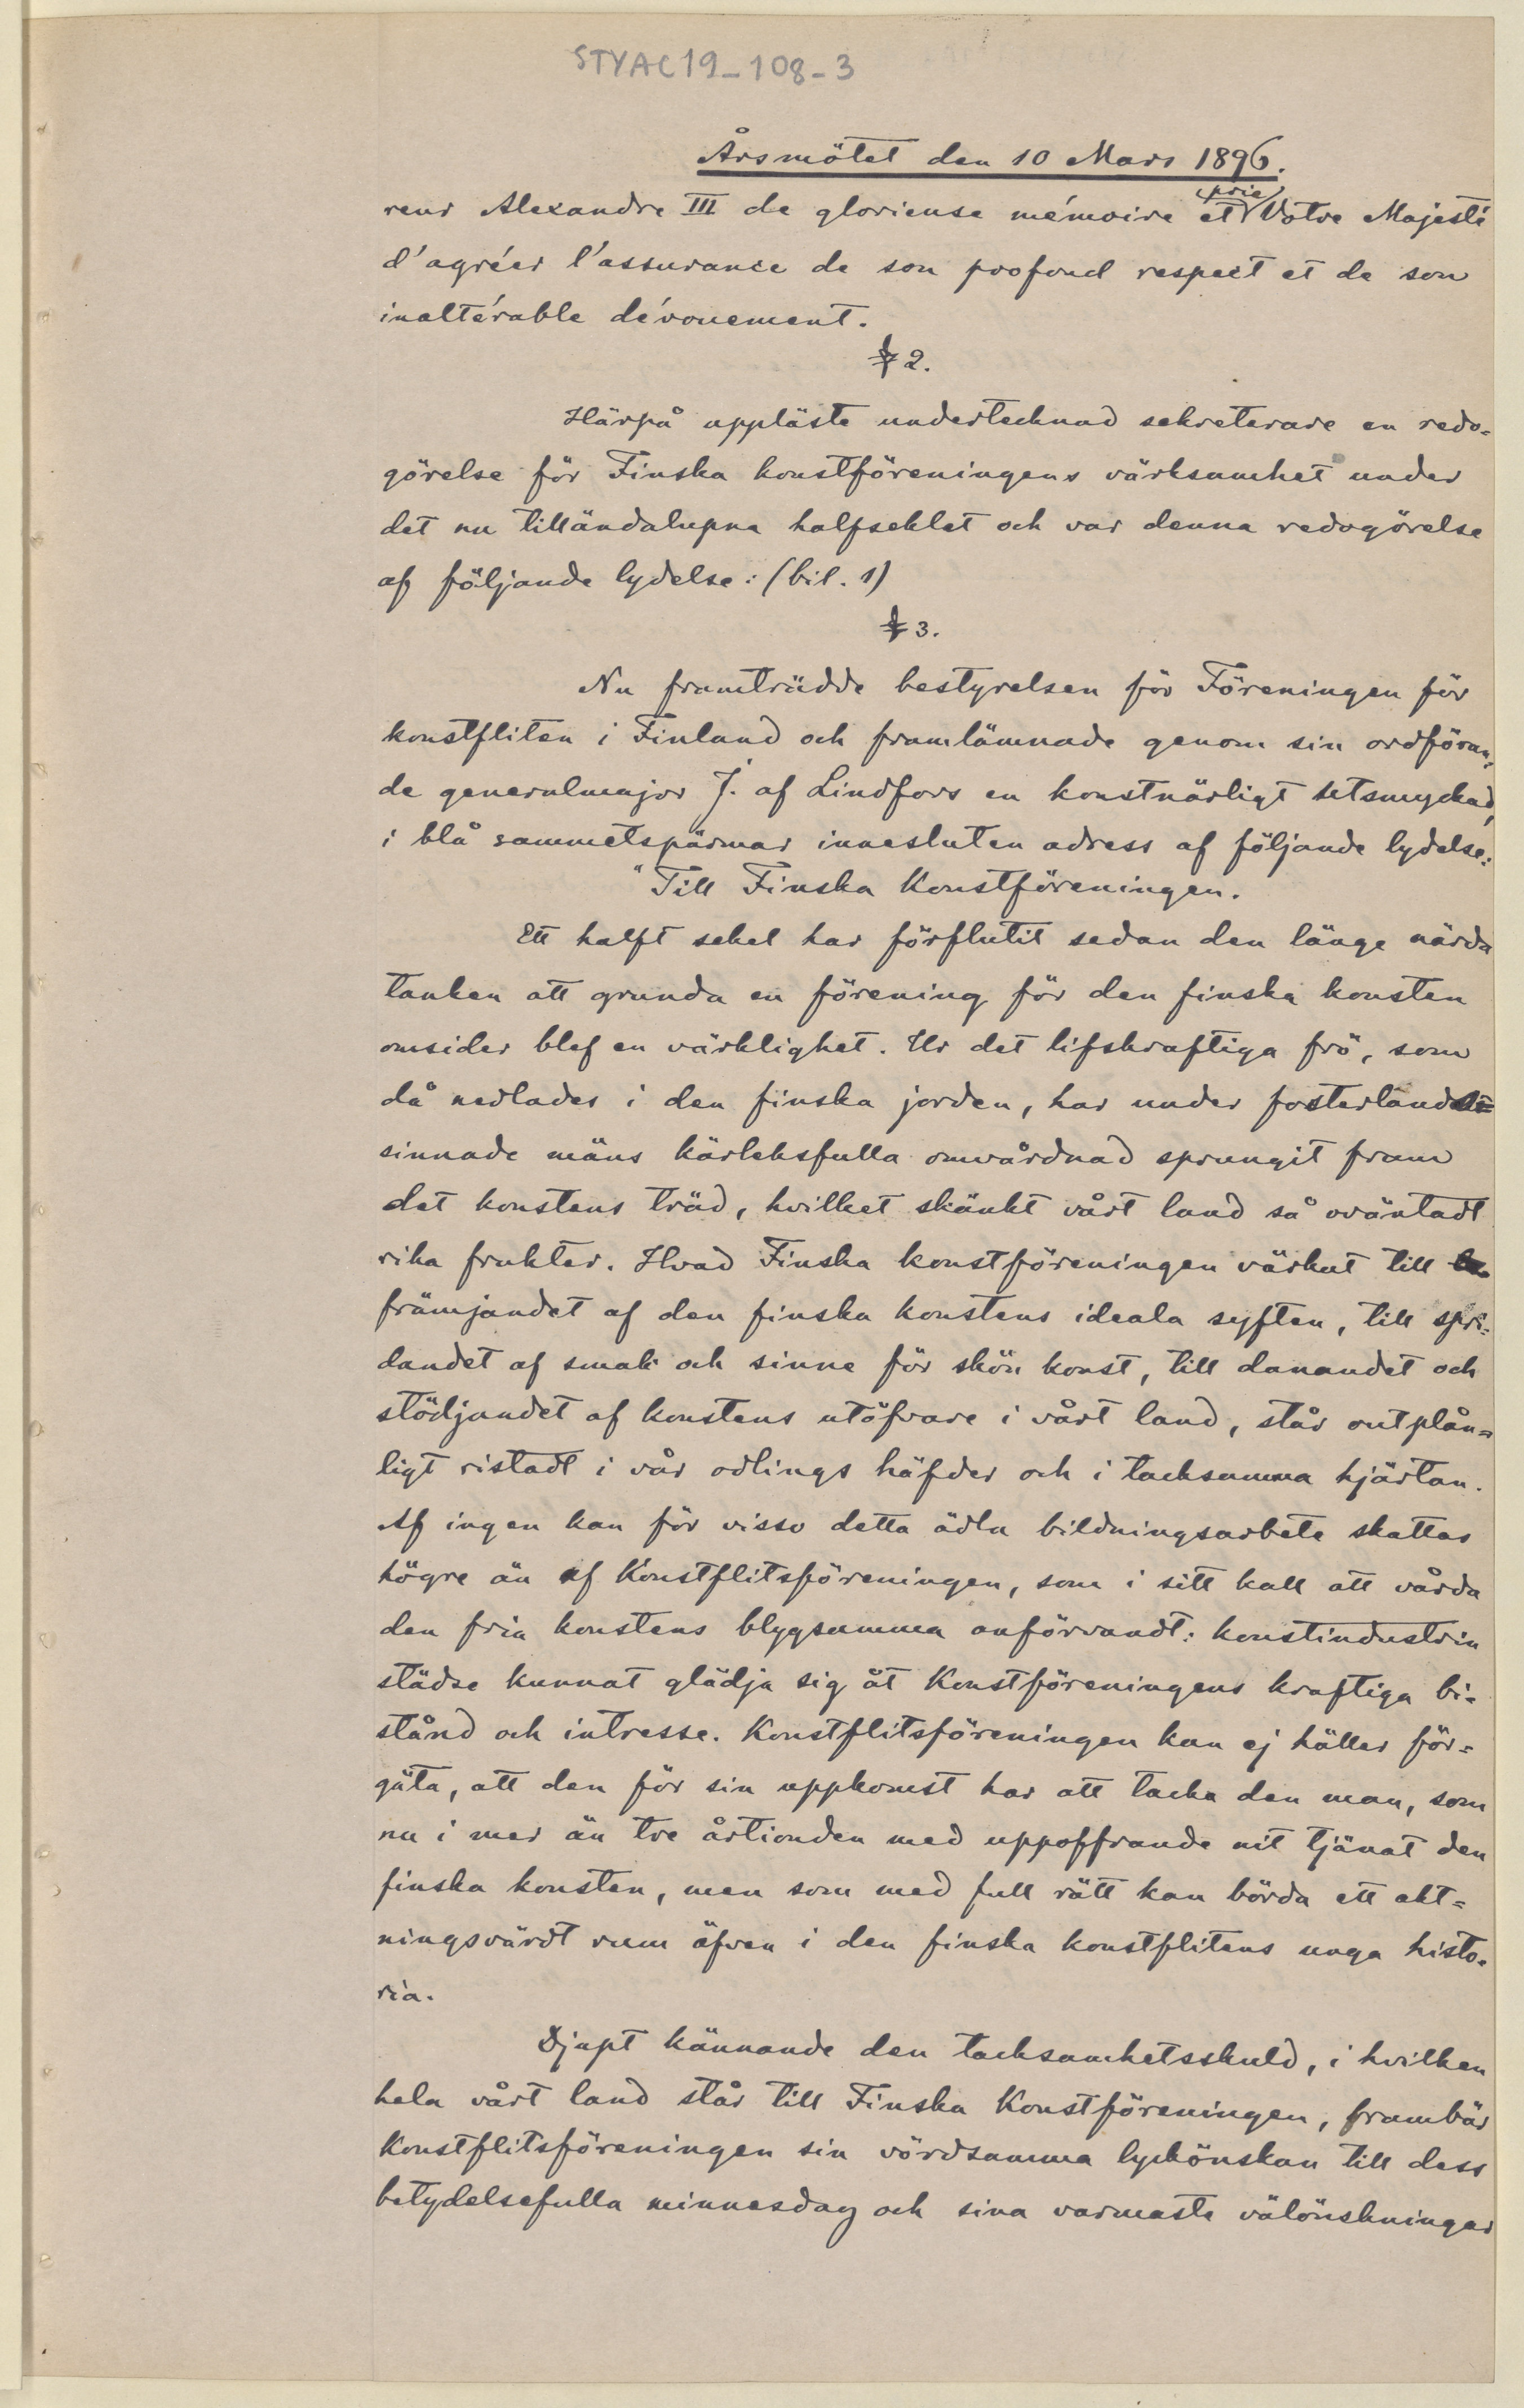 STYAC19-108-3
Årsmötet den 10 Mars 1896.
prie
reur Alexandre III de glorieuse mémoire et Votre Majesté
d'agréer l'assurance de son profond respect et de son
inaltérable dévouement.
§ 2.
Härpå uppläste undertecknad sekreterare en redo-
görelse för Finska konstföreningens värksamhet under
det nu tilländalupna halfseklet och var denna redogörelse
af följande lydelse: (bil. 1)
§ 3.
Nu framträdde bestyrelsen för Föreningen för
konstfliten i Finland och framlämnade genom sin ordföran-
de generalmajor J. af Lindfors en konstnärligt utsmyckad,
i blå sammetspärmar innesluten adress af följande lydelse:
"Till Finska Konstföreningen.
Ett halft sekel har förflutit sedan den länge närda
tanken att grunda en förening för den finska konsten
omsider blef en värklighet. Ur det lifskraftiga frö, som
då nedlades i den finska jorden, har under fosterländskt
sinnade mäns kärleksfulla omvårdnad sprungit fram
det konstens träd, hvilket skänkt vårt land så oväntadt
rika frukter. Hvad Finska konstföreningen värkat till
främjandet af den finska konstens ideala syften, till spri-
dandet af smak och sinne för skön konst, till danandet och
stödjandet af konstens utöfvare i vårt land, står outplån-
ligt ristadt i vår odlings häfder och i tacksamma hjärtan.
Af ingen kan för visso detta ädla bildningsarbete skattas
högre än af Konstflitsföreningen, som i sitt kall att vårda
den fria konstens blygsamma anförvandt: konstindustrin
städse kunnat glädja sig åt Konstföreningens kraftiga bi-
stånd och intresse. Konstflitsföreningen kan ej häller för-
gäta, att den för sin uppkomst har att tacka den man, som
nu i mer än tre årtionden med uppoffrande nit tjänat den
finska konsten, men som med full rätt kan börda ett akt-
ningsvärdt rum äfven i den finska konstflitens unga histo-
ria.
Djupt kännande den tacksamhetsskuld, i hvilken
hela vårt land står till Finska Konstföreningen, frambär
Konstflitsföreningen sin vördsamma lyckönskan till dess
betydelsefulla minnesdag och sina varmaste välönskningar